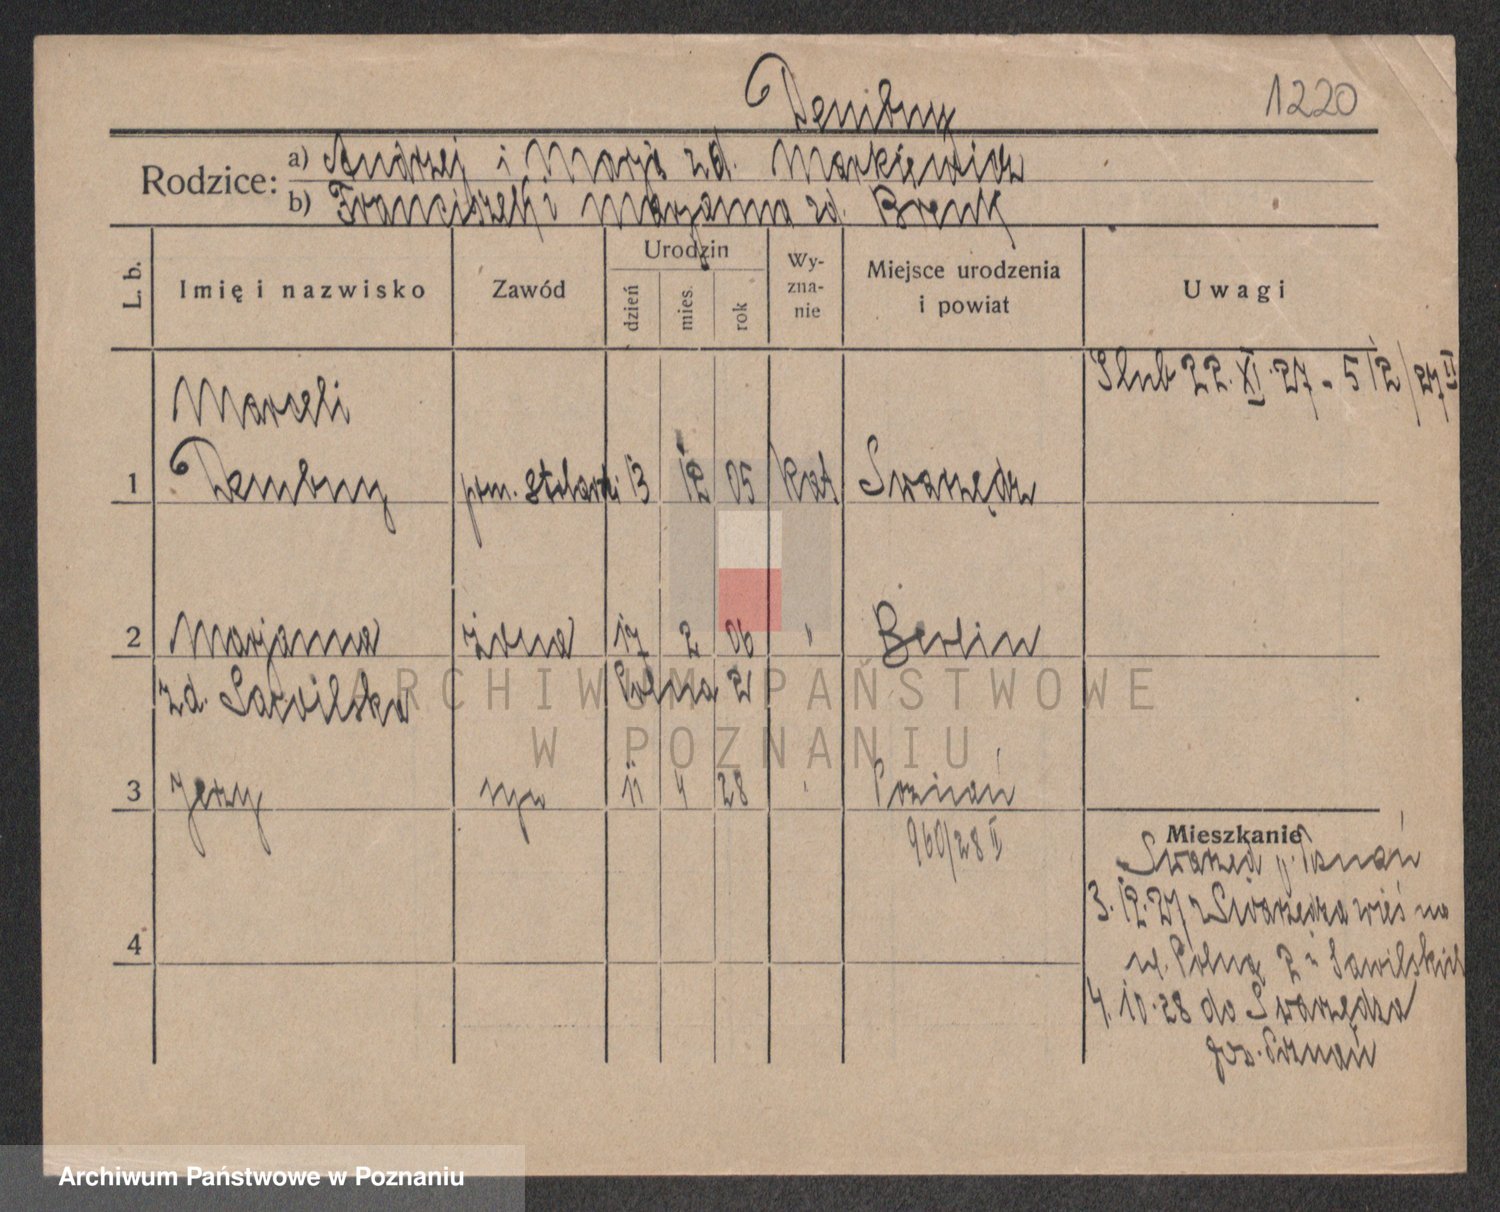 Dembny
1220
Rodzice:
a) Andrzej i Marja zd. Markiewicz
b) Franciszek i Marjanna zd. Brenk
L. b.
Imię i nazwisko
Zawód
Urodzin
dzień
mies.
rok
Wy-
zna-
nie
Miejsce urodzenia
i powiat
Uwagi
Ślub 22.XI.27 - 512/27 II
Marceli
1 Dembny pom. stolarski 13 12 05 kat Swarzędz
2 Marjanna żona 17 2 06 " Berlin
zd. Sawilska Polna 2
ARCHIWUM PAŃSTWOWE
W POZNANIU
3 Jerzy syn 11 4 28 " Poznań
960/28 II
Mieszkanie
Swarzędz p. Poznań
3.12.27 z Swarzędza wieś na
ul. Polną 2 u Sawilskich
4
4.10.28 do Swarzędza
pow. Poznań
Archiwum Państwowe w Poznaniu